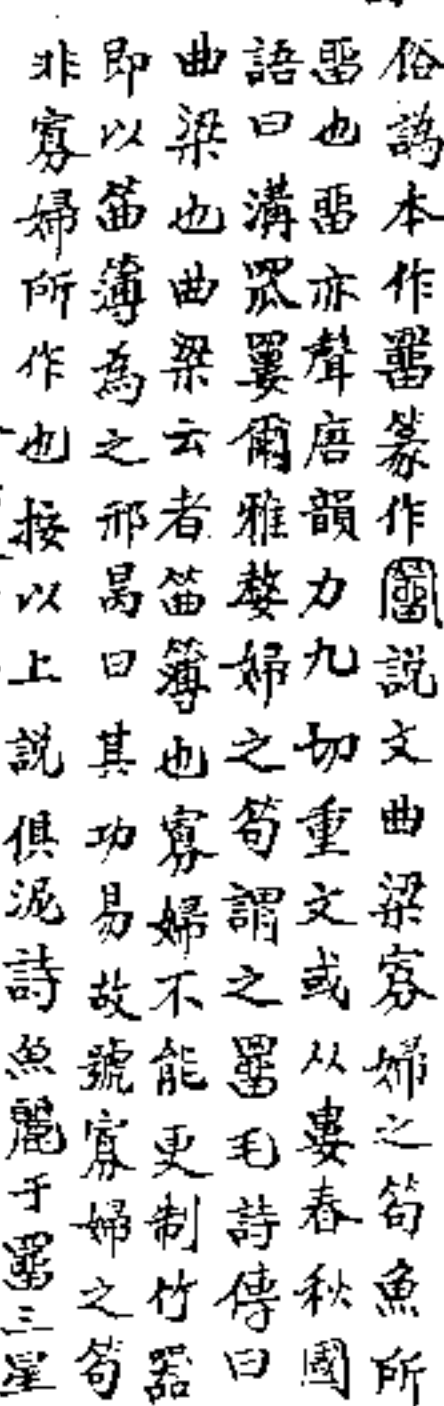 俗譌本作罶篆作罶說文曲梁寡婦之笱魚所
罶也罶亦聲唐韻力九切重文或从婁春秋國
語曰溝罛罶爾雅嫠婦之笱謂之罶毛詩傳曰
曲梁也曲梁云者笛簿也寡婦不能更制竹器
即以笛簿為之邢昺曰其功易故號寡婦之笱
非寡婦所作也按以上說俱泥詩魚麗于罶三星